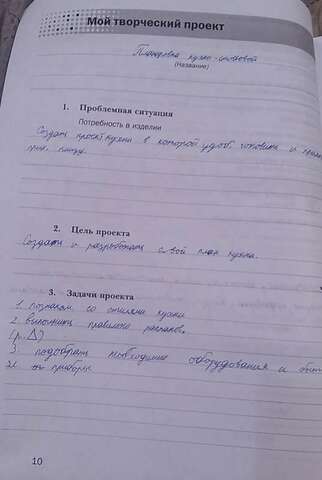 Мой творческий проект
Планировка кухни-столовой
(Название)
1. Проблемная ситуация
Потребность в изделии
Создать проект кухни в которой удоб. готовить и
пищу.
2. Цель проекта
Создать и разработать свой план кухни.
3. Задачи проекта
1. познаком. со стилями кухни
2. выполнить правильно расположе
(р. Δ)
3. подобрать необходимые оборудования и быт
приборы
10